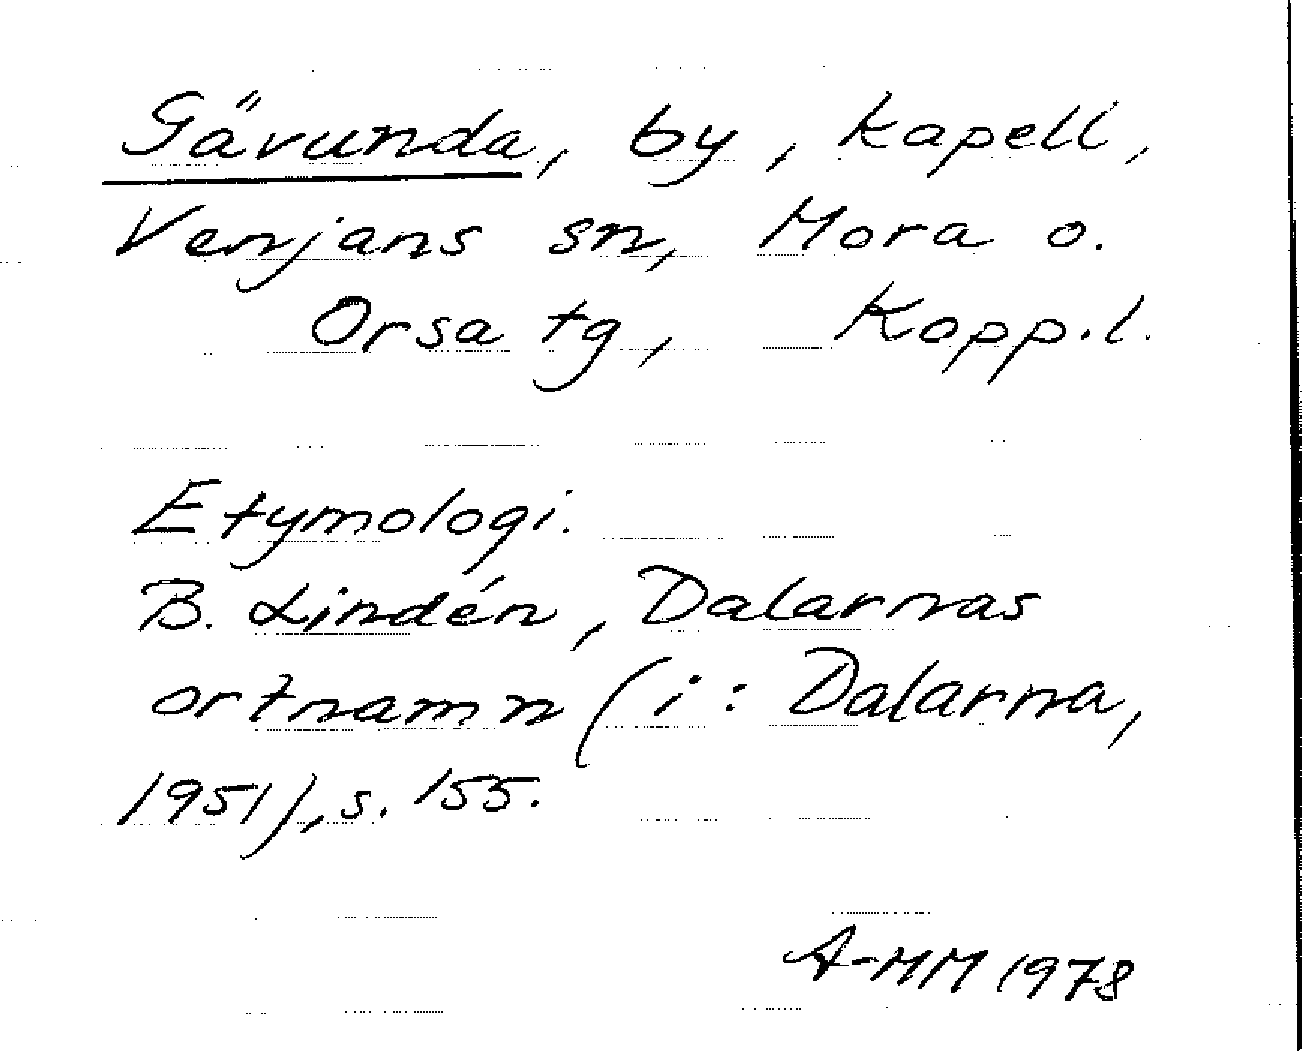 Gävunda, by, kapell,
Venjans sn, Mora o.
Orsa tg, Kopp.l.
Etymologi.
B. Lindén, Dalarnas
ortnamn (i: Dalarna,
1951), s. 155.
A-MM 1978